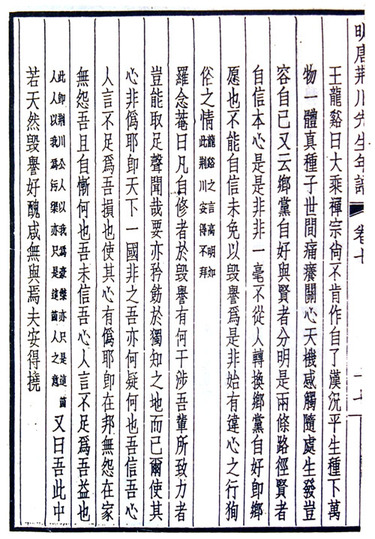 明唐荊川先生年譜 卷七
王龍谿曰大乘禪宗尙不肯作自了漢況平生種下萬
物一體真種子世間痛癢關心天機感觸隨處生發豈
容自已又云鄉黨自好與賢者分明是兩條路徑賢者
自信本心是是非非一毫不從人轉換鄉黨自好卽鄉
愿也不能自信未免以毀譽爲是非始有違心之行狥
俗之情龍谿之言高明如此荆川安得不拜
羅念菴曰凡自修者於毀譽有何干涉吾輩所致力者
豈能取足聲聞哉要亦矜飭於獨知之地而已爾使其
心非僞耶卽天下一國非之吾亦何疑何也吾信吾心
人言不足爲吾損也使其心有僞耶卽在邦無怨在家
無怨吾且自慚何也吾未信吾心人言不足爲吾益也
此卽荆川公人以我爲豪傑亦只是這箇人人以我爲污亦只是這箇人之意又曰吾此中
若天然毀譽好醜咸無與焉夫安得撓